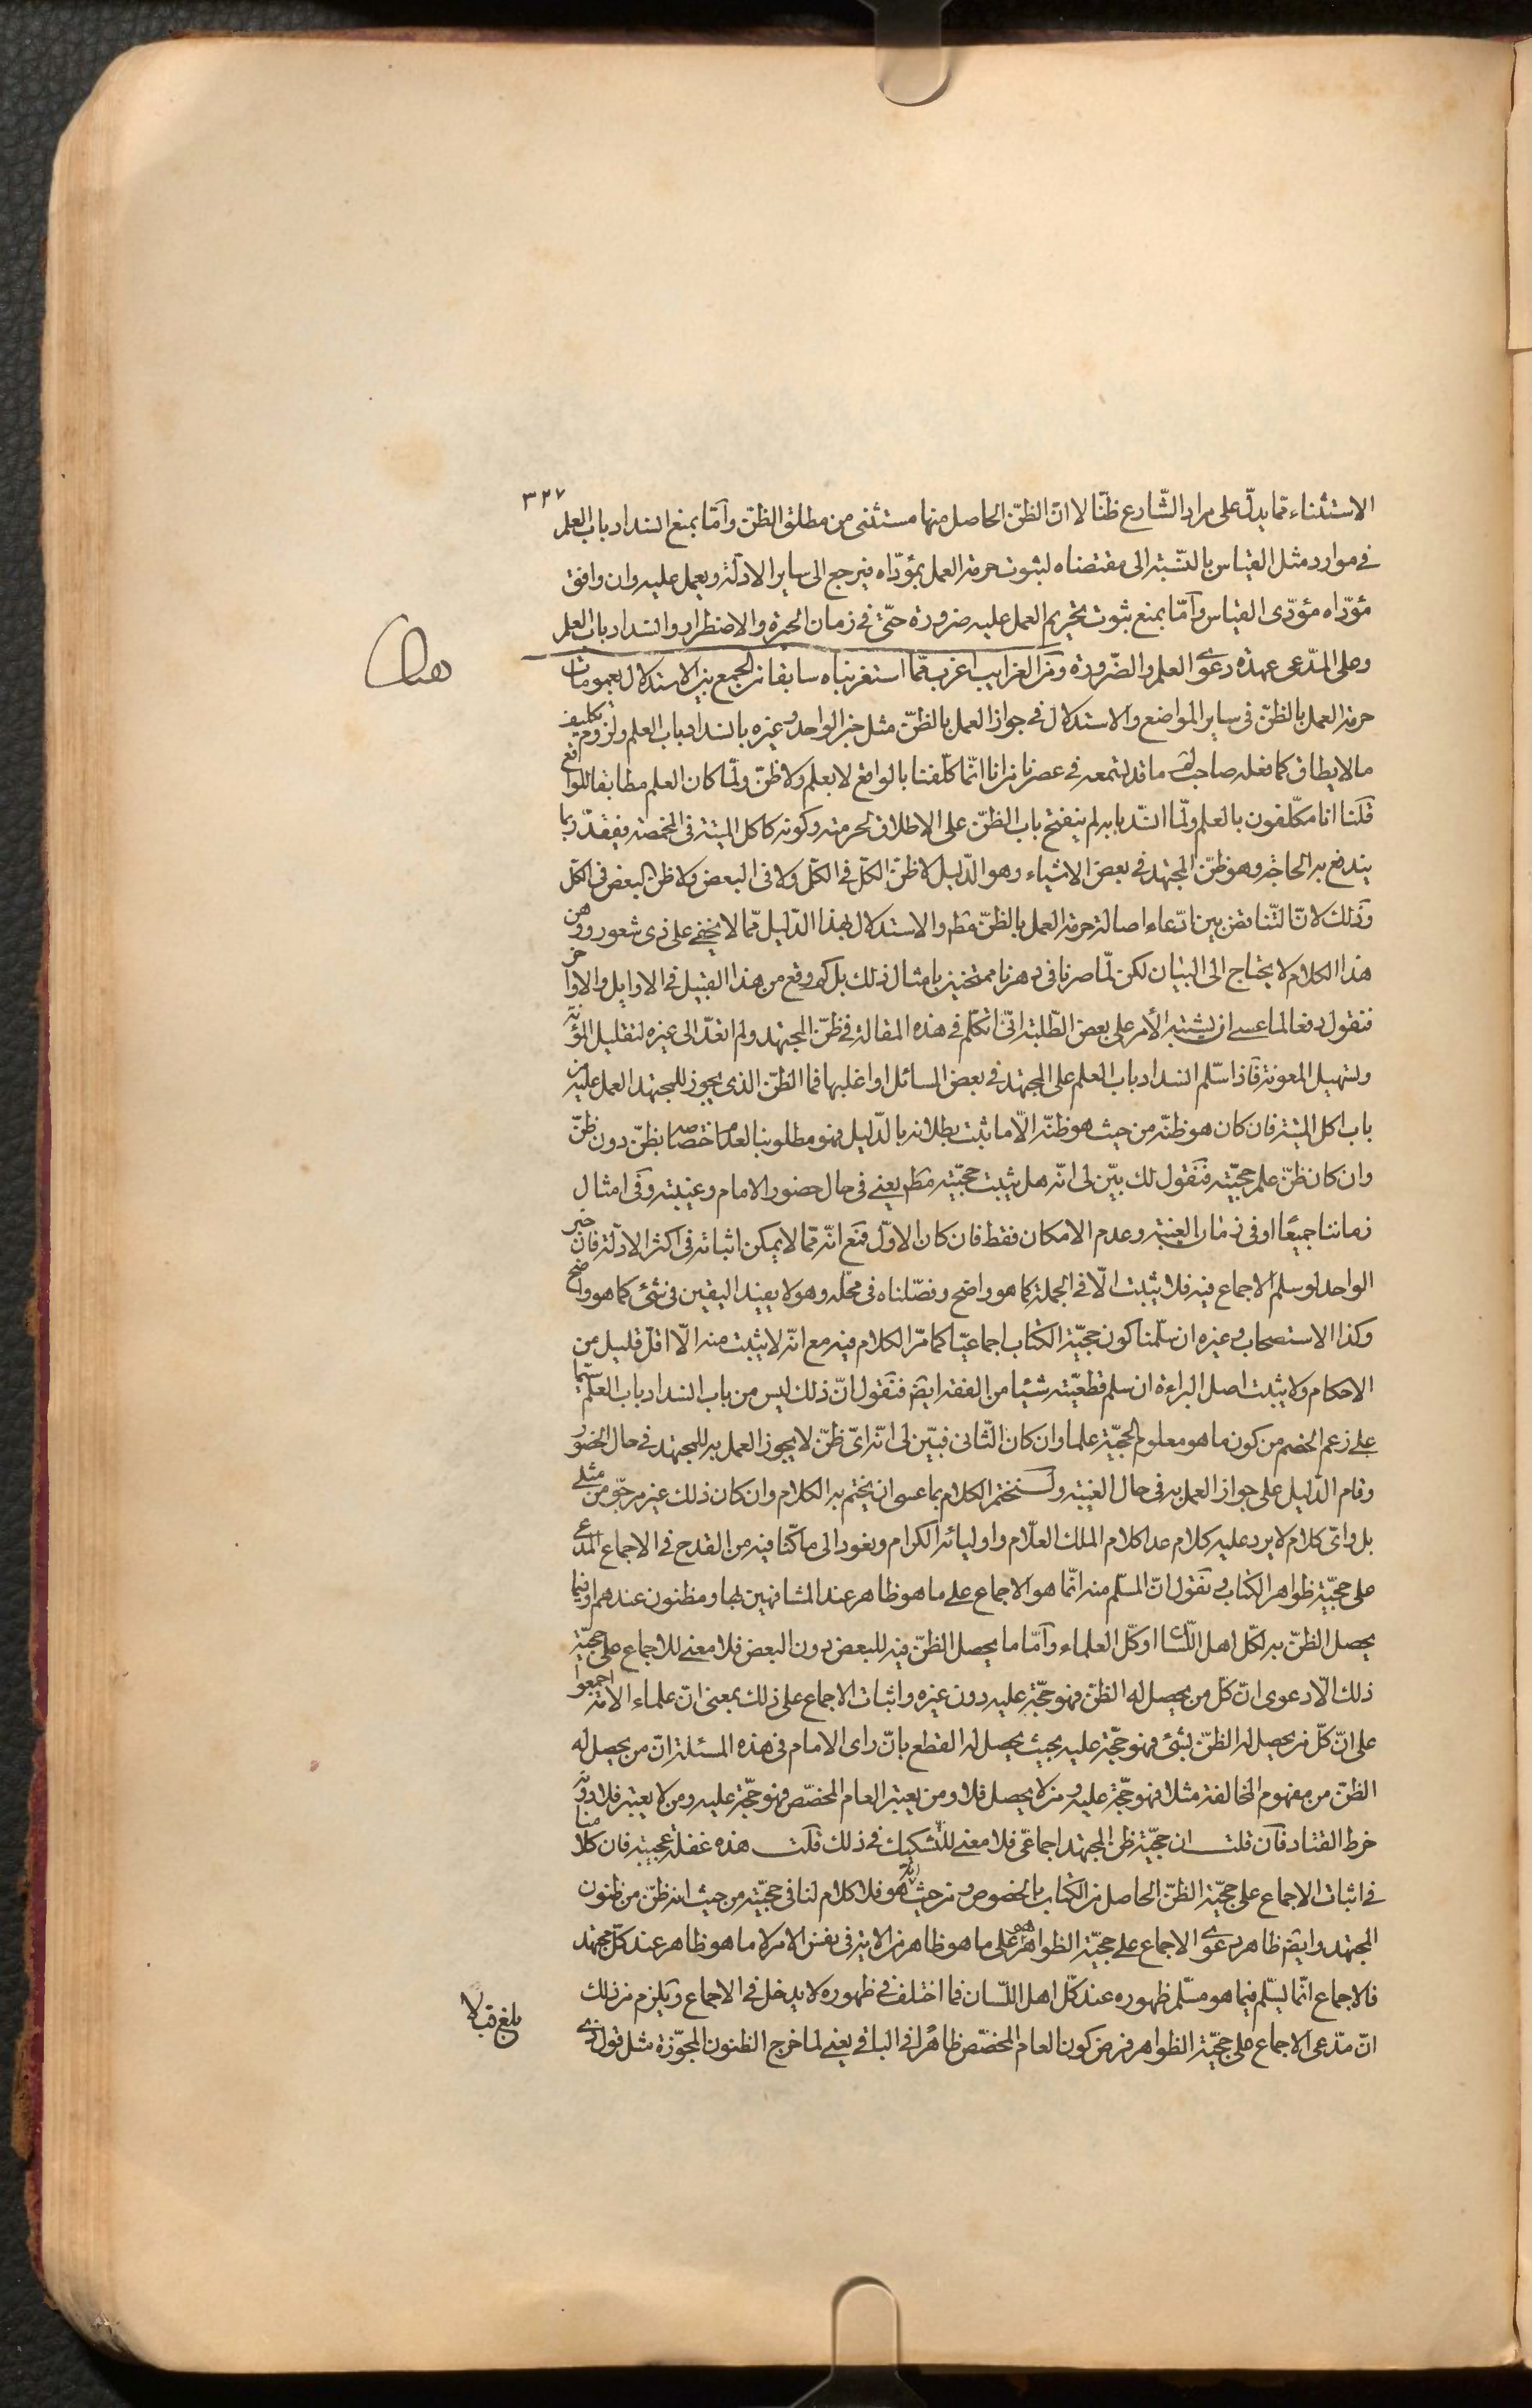 ٣٢٧
الاستثناء ممّا يدلّ على مراد الشّارع ظنّا لا انّ الظنّ الحاصل منها مستثنى من مطلق الظنّ وامّا بمنع انسداد باب العلم
فى موارد مثل القياس بالنّسبة الى مقتضاه لثبوت حرمة العمل بمؤدّاه فيرجع الى ساير الادلّة ويعمل عليه وان وافق
مؤدّاه مؤدّى القياس وامّا بمنع ثبوت تحريم العمل عليه ضرورة حتّى فى زمان الحيرة والاضطرار وانسداد باب العلم
وعلى المدّعى عهدة دعوى العلم والضّرورة ومن الغرايب اغرب ممّا استغربناه سابقا من الجمع بين الاستدلال بعمومات
حرمة العمل بالظنّ فى ساير المواضع والاستدلال فى جواز العمل بالظنّ مثل خبر الواحد وغيره بانسداد باب العلم ولزوم تكليف
مالايطاق كما فعله صاحب لم ما قد نسمعه فى عصرنا من انا انّما كلّفنا بالواقع لا بعلم ولا ظنّ ولمّا كان العلم مطابقا للواقع
قلنا انا مكلّفون بالعلم ولمّا انسّد بابه لم ينفتح باب الظنّ على الاطلاق لحرمته وكونه كاكل الميتة فى المخمصة فيقدّر بما
يندفع به الحاجة وهو ظنّ المجتهد فى بعض الاشياء وهو الدّليل لا ظنّ الكلّ فى الكلّ ولا فى البعض ولا ظن البعض فى الكلّ
وذلك لانّ التّناقض بين ادّعاء اصالة حرمة العمل بالظنّ مطم والاستدلال بهذا الدّليل ممّا لا يخفى على ذى شعور ووهن
هذا الكلام لا يحتاج الى البيان لكن لمّا صرنا فى دهرنا ممتحنين بامثال ذلك بل كم وقع من هذا القبيل فى الاوايل والاواخر
فنقول دفعا لما عسى ان يشتبه الأمر على بعض الطّلبة انّى اتكلّم فى هذه المقالة فى ظنّ المجتهد ولم اتعدّ الى غيره لتقليل المؤنة
وتسهيل المعونة فاذا سلّم انسداد باب العلم على المجتهد فى بعض المسائل او اغلبها فما الظنّ الذى يجوز للمجتهد العمل عليه من
باب اكل الميتة فان كان هو ظنّه من حيث هو ظنّه الّا ما ثبت بطلانه بالدّليل فهو مطلوبنا لعدم اختصاصه بظنّ دون ظنّ
وان كان ظنّ علم حجيّته فنقول لك بيّن لى انّه هل يثبت حجيّته مطم يعنى فى حال حضور الامام وغيبته وفى امثال
زماننا جميعًا او فى زمان الغيبة وعدم الامكان فقط فان كان الاوّل فمع انّه ممّا لا يمكن اثباته فى اكثر الادلّة فان خبر
الواحد لو سلم الاجماع فيه فلا يثبت الّا فى الجملة كما هو واضح وفصّلناه فى محلّه وهو لا يفيد اليقين فى شئ كما هو واضح
وكذا الاستصحاب وغيره ان سلّمنا كون حجيّة الكتاب اجماعيّا كما مرّ الكلام فيه مع انّه لا يثبت منه الّا اقلّ قليل من
الاحكام ولا يثبت اصل البراءة ان سلم قطعيّته شيئا من الفقه ايضم فنقول انّ ذلك ليس من باب انسداد باب العلم سيّما
على زعم الخصم من كون ما هو معلوم الحجيّة علما وان كان الثّانى فبيّن لى انّه اىّ ظنّ لا يجوز العمل به للمجتهد فى حال الحضور
وقام الدّليل على جواز العمل به فى حال الغيبة ولنختم الكلام بما عسى ان يختم به الكلام وان كان ذلك غير مرجوّ من مثلى
بل واىّ كلام لا يرد عليه كلام عدا كلام الملك العلّام واوليائه الكرام ونعود الى ما كنّا فيه من القدح فى الاجماع المدّعى
على حجيّة ظواهر الكتاب ونقول انّ المسلّم منه انّما هو الاجماع على ما هو ظاهر عند المشافهين بها ومظنون عندهم او فيما
يحصل الظنّ به لكلّ اهل اللّسان او كلّ العلماء وامّا ما يحصل الظنّ فيه للبعض دون البعض فلا معنى للاجماع على حجيّة
ذلك الّا دعوى انّ كلّ من يحصل له الظنّ فهو حجّة عليه دون غيره واثبات الاجماع على ذلك بمعنى انّ علماء الامّة اجمعوا
على انّ كلّ من يحصل له الظنّ بشئ فهو حجّة عليه بحيث يحصل له القطع بانّ راى الامام فى هذه المسئلة انّ من يحصل له
الظنّ من مفهوم المخالفة مثلا فهو حجّة عليه ومن لا يحصل فلا ومن يعتبر العام المخصّص فهو حجّة عليه ومن لا يعتبر فلا ودونه
خرط القتاد فان قلت ان حجيّة ظن المجتهد اجماعىّ فلا معنى للتّشكيك فى ذلك قلت هذه غفلة عجيبة فان كلامنا
فى اثبات الاجماع على حجيّة الظنّ الحاصل من الكتاب بالخصوص ومن حيث انّه هو فلا كلام لنا فى حجيّته من حيث انه ظنّ من ظنون
المجتهد وايضم ظاهر دعوى الاجماع على حجيّة الظواهر هو على ما هو ظاهر من الاية فى نفس الامر لا ما هو ظاهر عند كلّ مجتهد
فالاجماع انّما يسلّم فيما هو مسلّم ظهوره عند كلّ اهل اللّسان فما اختلف فى ظهوره لا يدخل فى الاجماع ويلزم من ذلك
انّ مدّعى الاجماع على حجيّة الظواهر فرض كون العام المخصّص ظاهرًا فى الباقى يعنى لما خرج الظنون المجوّزة مثل قول ذى
بلغ قبالا